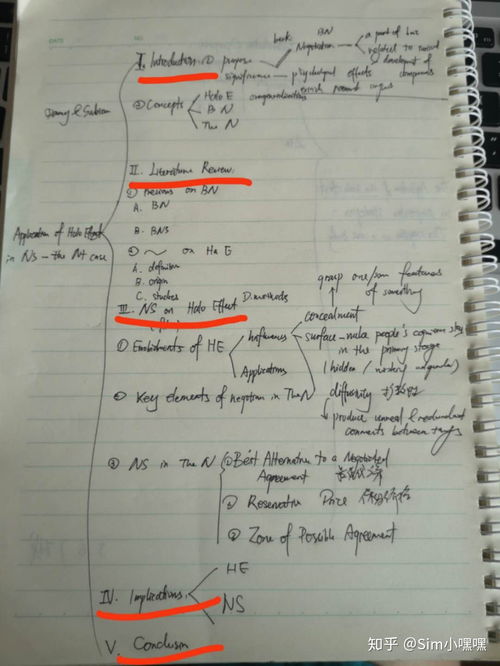 DATE
NO.
BN
book
a part of
I. Introduction ① purpose
Negotiation
related to
& development of
significance — psychological effects
② Concepts
Halo E
BN
The N
II. Literature Review
① Previous on BN
A. BN
B. BNS
② ~ on Ha E
Application of Halo Effect
in NS — the N+ case
A. definition
B. origin
C. studies
D. methods
grasp one/some features
of something
III. NS on Halo Effect
concealment
① Embodiments of HE
Influences
surface – make people's cognition stay
in the primary stage
Applications
(hidden /
② Key elements of negotiation in The N
diffusivity 扩散性
produce unreal & redundant
comments between things
③ NS in The N
① Best Alternative to a Negotiated
Agreement
② Reservation Price
③ Zone of Possible Agreement
HE
IV. Implications
NS
V. Conclusion
知乎 @Sim小嘿嘿